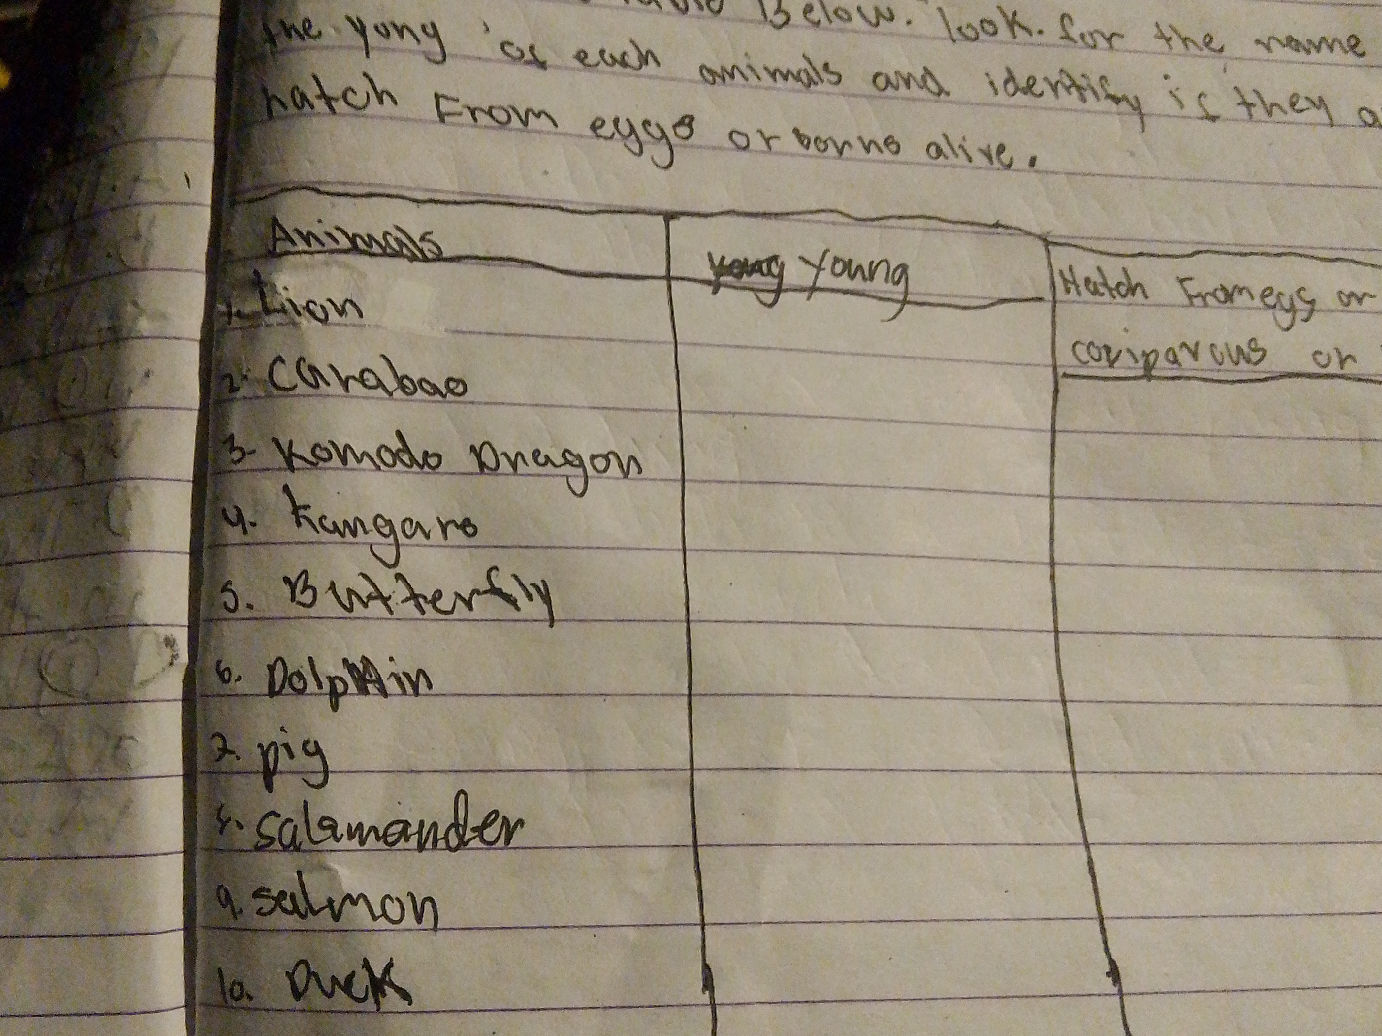 Below. look. for the name
the yong of each animals and identify is they a
hatch From eggs or borns alive.
Animals
young Young
Hatch From egs or
coviparous or
1. Lion
2. Carabao
3- Komodo Dragon
4. Kangaro
5. Butterfly
6. Dolphin
7. pig
8. Salamander
9. salmon
10. Duck